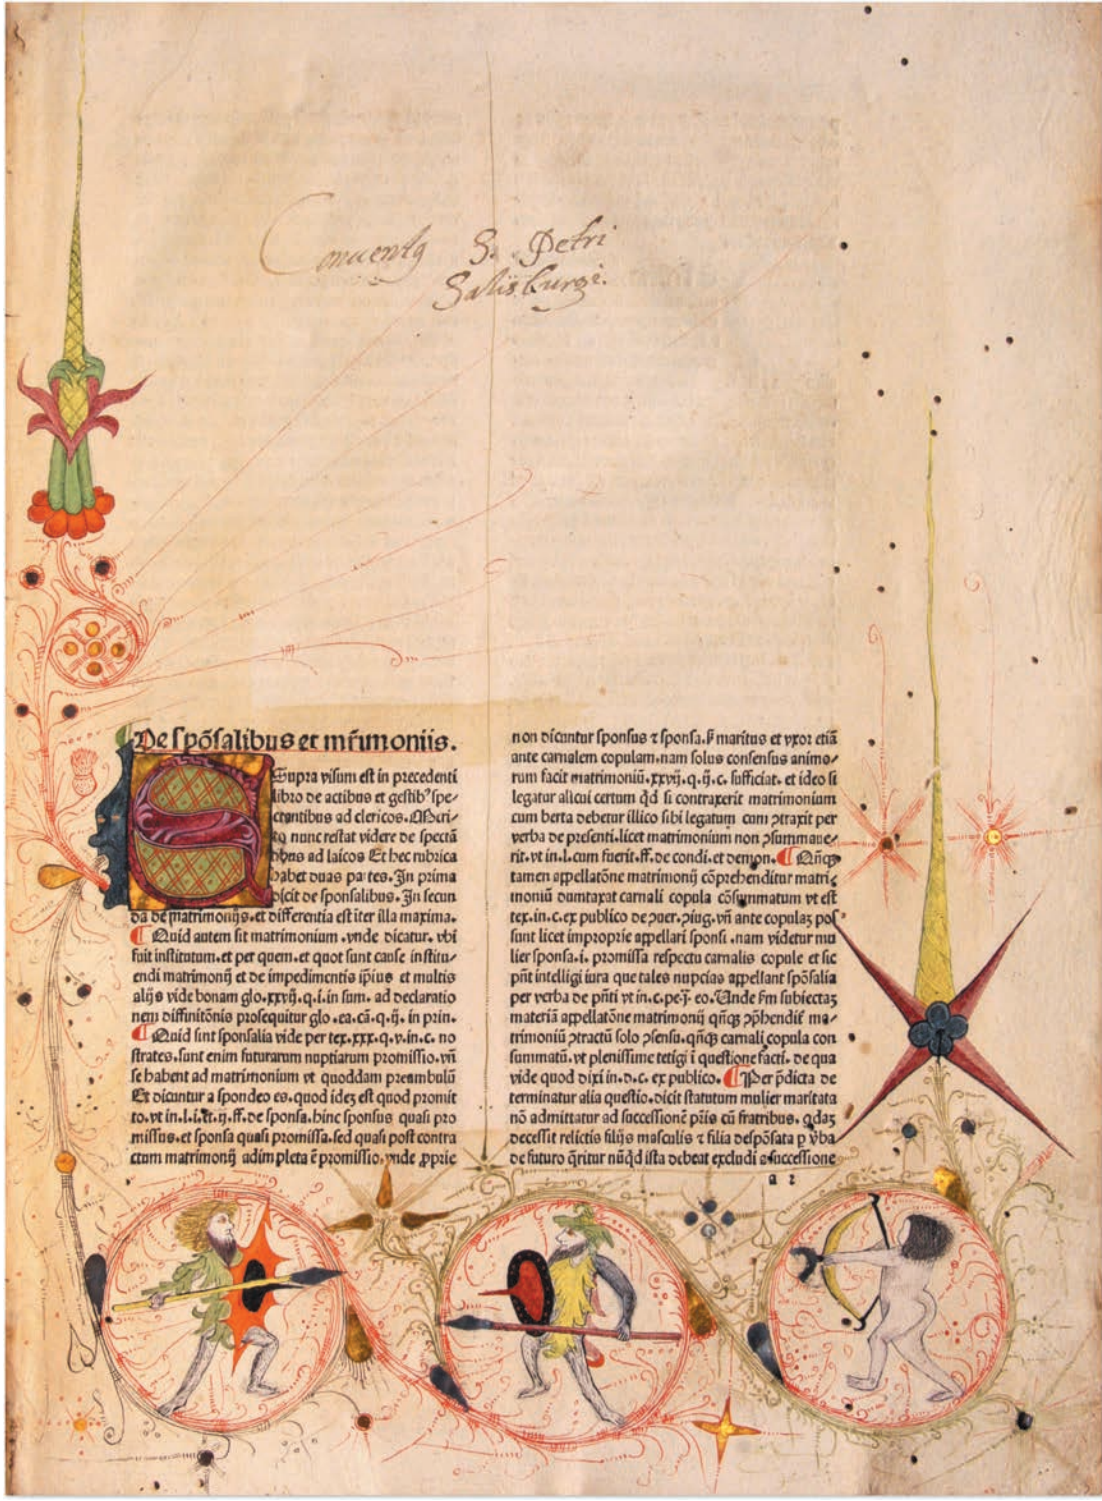 Conuentꝯ S. Petri
Salisburgi.
De spōsalibus et mr̄imoniis.
Supra visum est in precedenti
libro de actibus et gestibꝰ spe⸗
ctantibus ad clericos. Meri⸗
to nunc restat videre de spectā
tibus ad laicos Et hec rubrica
habet duas partes. In prima
dicit de sponsalibus. In secun
da de matrimonijs. et differentia est iter illa maxima.
¶ Quid autem sit matrimonium. vnde dicatur. vbi
fuit institutum. et per quem. et quot sunt cause institu⸗
endi matrimonij et de impedimentis ip̄ius et multis
alijs vide bonam glo. xxvij. q. i. in sum. ad declaratio
nem diffinitōnis prosequitur glo. ea. cā. q. ij. in prin.
¶ Quid sint sponsalia vide per tex. xxx. q. v. in. c. no
strates. sunt enim futurarum nuptiarum promissio. vn̄
se habent ad matrimonium vt quoddam preambulū
Et dicuntur a spondeo es. quod ideꝫ est quod promit
to. vt in. l. i. et. ij. ff. de sponsa. hinc sponsus quasi pro
missus. et sponsa quasi promissa. sed quasi post contra
ctum matrimonij adimpleta ē promissio. vnde ꝓprie
non dicuntur sponsus ⁊ sponsa. ſꝫ maritus et vxor etiā
ante carnalem copulam. nam solus consensus animo⸗
rum facit matrimoniū. xxvij. q. ij. c. sufficiat. et ideo si
legatur alicui certum qd̄ si contraxerit matrimonium
cum berta debetur illico sibi legatum cum ꝯtraxit per
verba de presenti. licet matrimonium non ꝯsummaue⸗
rit. vt in. l. cum fuerit. ff. de condi. et demon. ¶ Qn̄qꝫ
tamen appellatōne matrimonij cōprehenditur matri⸗
moniū dumtaxat carnali copula cōsummatum vt est
tex. in. c. ex publico de ꝯuer. ꝯiug. vn̄ ante copulaꝫ pos
sunt licet improprie appellari sponsi. nam videtur mu
lier sponsa. i. promissa respectu carnalis copule et sic
pn̄t intelligi iura que tales nupcias appellant spōsalia
per verba de pn̄ti vt in. c. pe. ȷ̄. eo. Unde fm subiectaꝫ
materiā appellatōne matrimonij qn̄qꝫ ꝯp̄hendit᷑ ma⸗
trimoniū ꝯtractū solo ꝯsensu. qn̄qꝫ carnali copula con
summatū. vt plenissime tetigi ī questione facti. de qua
vide quod dixi in. d. c. ex publico. ¶ Per p̄dicta de
terminatur alia questio. dicit statutum mulier maritata
nō admittatur ad successionē pr̄is cū fratribus. qdaꝫ
decessit relictis filijs masculis ⁊ filia despōsata ꝑ v̄ba
de futuro q̄ritur nūqd̄ ista debeat excludi a successione
a 2